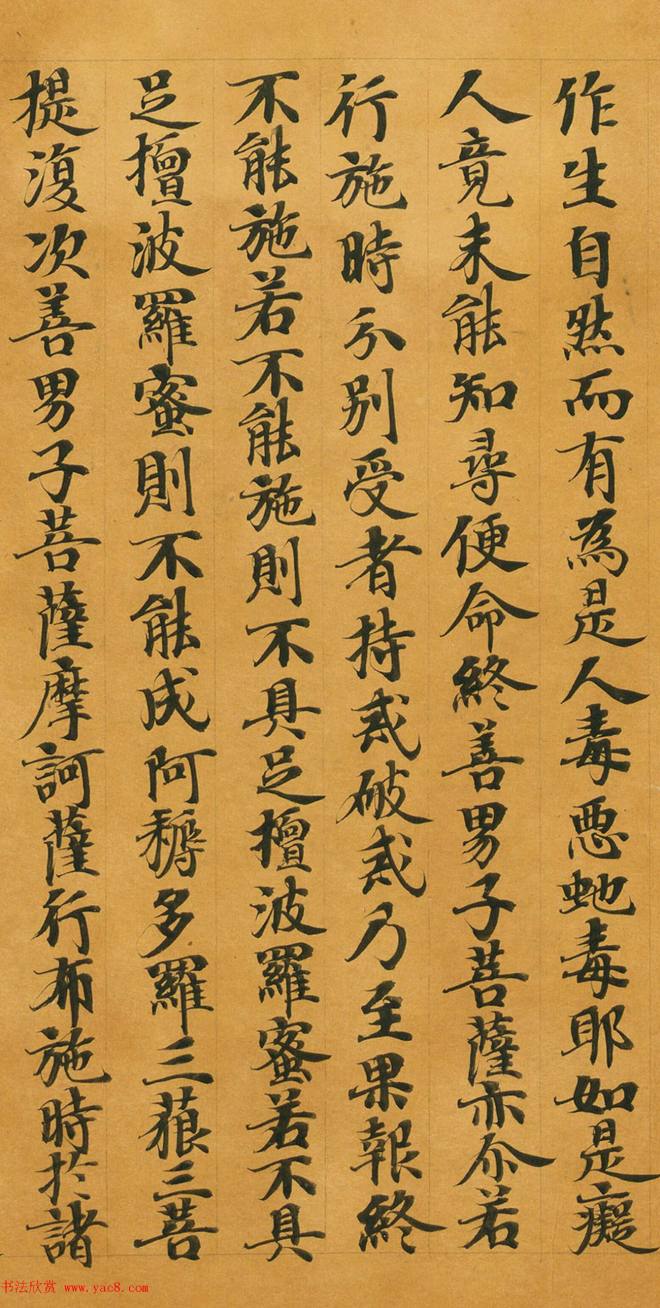 作生自然而有為是人毒惡虵毒耶如是癡
人竟未能知尋便命終善男子菩薩亦尒若
行施時分別受者持戒破戒乃至果報終
不能施若不能施則不具足檀波羅蜜若不具
足檀波羅蜜則不能成阿耨多羅三藐三菩
提復次善男子菩薩摩訶薩行布施時於諸
书法欣赏 www.yac8.com